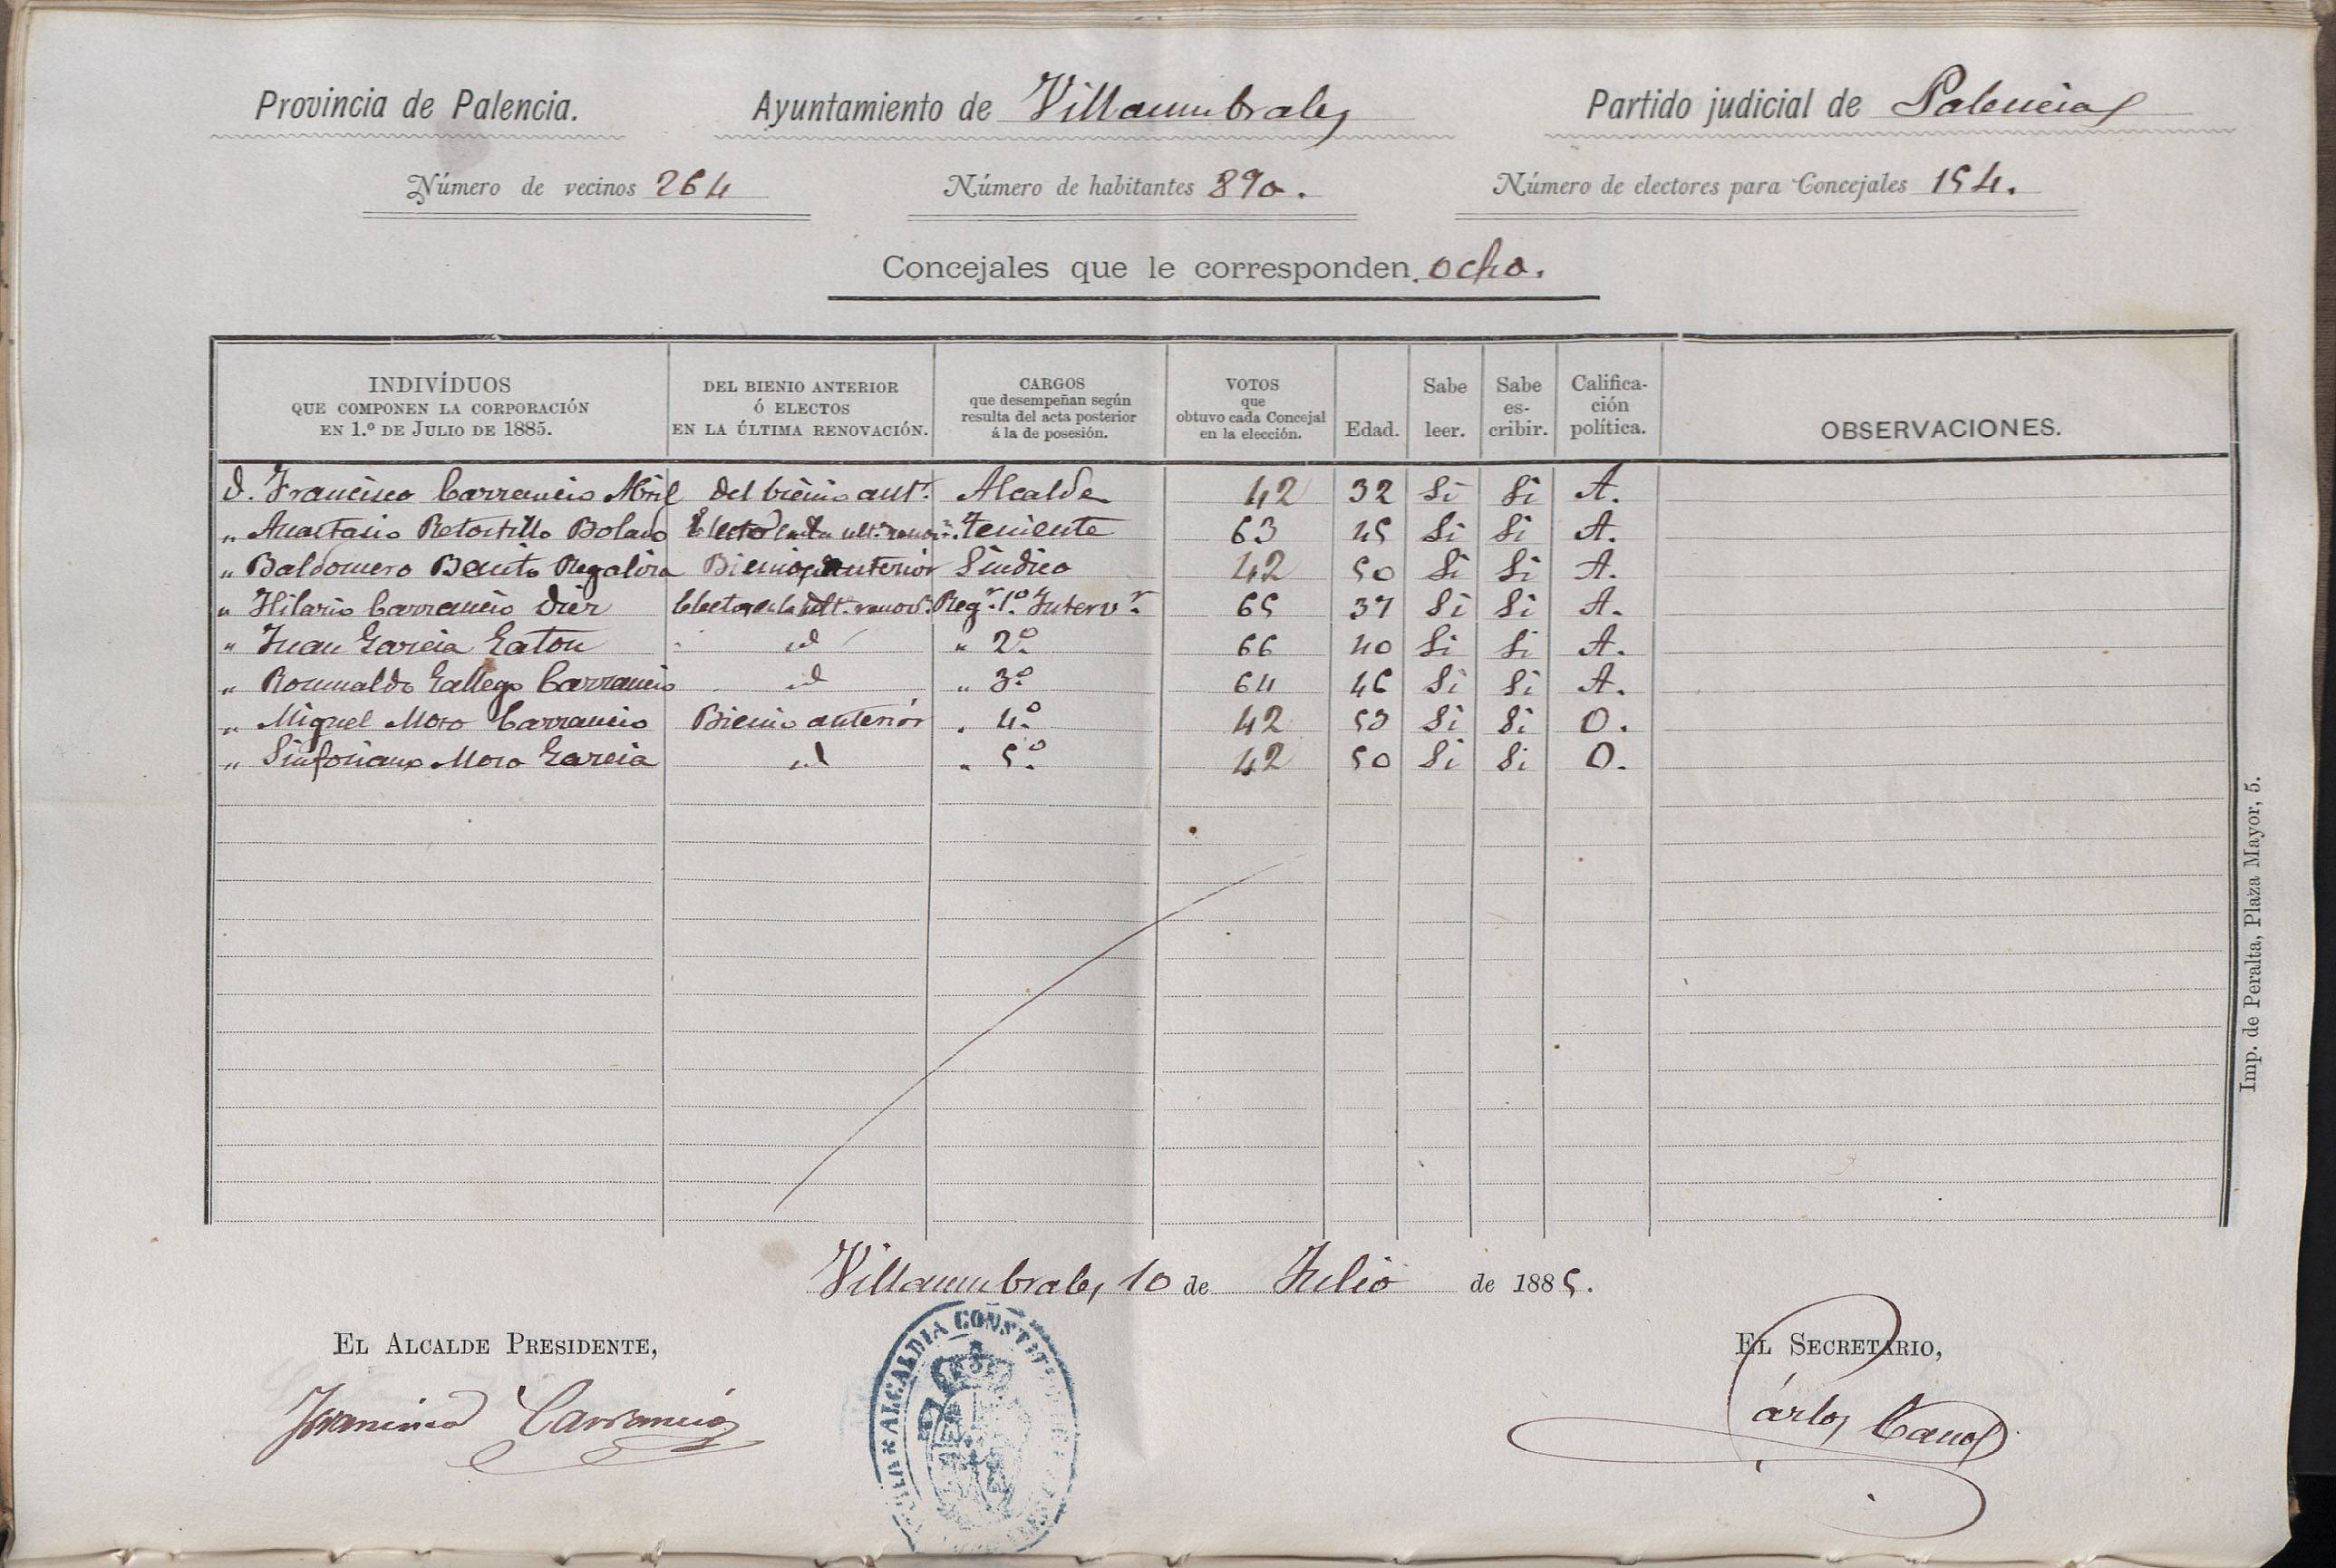 Provincia de Palencia. Ayuntamiento de Villaumbrales Partido judicial de Palencia
Número de vecinos 264 Número de habitantes 890. Número de electores para Concejales 154.
Concejales que le corresponden ocho.
INDIVÍDUOS QUE COMPONEN LA CORPORACIÓN EN 1.º DE JULIO DE 1885. DEL BIENIO ANTERIOR Ó ELECTOS EN LA ÚLTIMA RENOVACIÓN. CARGOS que desempeñan según resulta del acta posterior á la de posesión. VOTOS que obtuvo cada Concejal en la elección. Edad. Sabe leer. Sabe es-cribir. Califica-ción política. OBSERVACIONES.
D. Francisco Carrancio Abril del bienio antr. Alcalde 42 32 Si Si A.
" Anastasio Retortillo Bolado Electo en la ult.ª renov.n Teniente 63 45 Si Si A.
" Baldomero Benito Regaliza Bienio anterior Sindico 42 50 Si Si A.
" Hilario Carrancio Diez Electo en la ult.ª renov.n Reg.r 1.º Interv.r 65 37 Si Si A.
" Juan Garcia Gaton id " 2.º 66 40 Si Si A.
" Romualdo Gallego Carrancio id " 3.º 64 46 Si Si A.
" Miguel Moro Carrancio Bienio anterior " 4.º 42 53 Si Si O.
" Sinforiano Moro Garcia id " 5.º 42 50 Si Si O.
Villaumbrales, 10 de Julio de 1885.
EL ALCALDE PRESIDENTE, EL SECRETARIO,
Francisco Carrancio Cárlos Cano
ALCALDIA CONST
Imp. de Peralta, Plaza Mayor, 5.